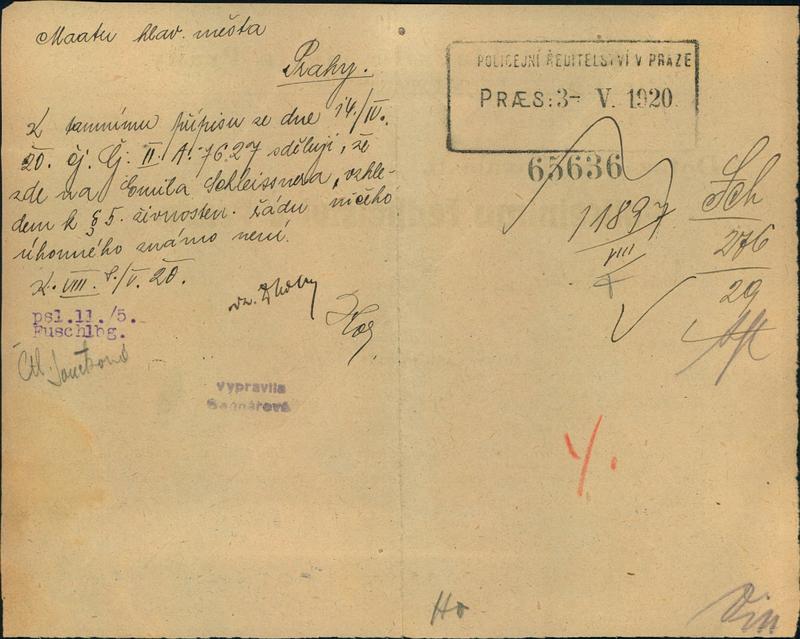 Maatu hlav. města
Prahy.
K tamnímu přípisu ze dne 14/IV.
20. čj. Čj. II. A. 7627 sděluji, že
zde na Emila Schleissnera, vzhle-
dem k § 5. živnosten. řádu ničeho
úhonného známo není.
K. VIII. /V. 20.
psl.11./5.
Fuschlbg.
Vypravila
POLICEJNÍ ŘEDITELSTVÍ V PRAZE
PRÆS: 3- V. 1920
65636
11897
VIII
Sch
276
29
Ho